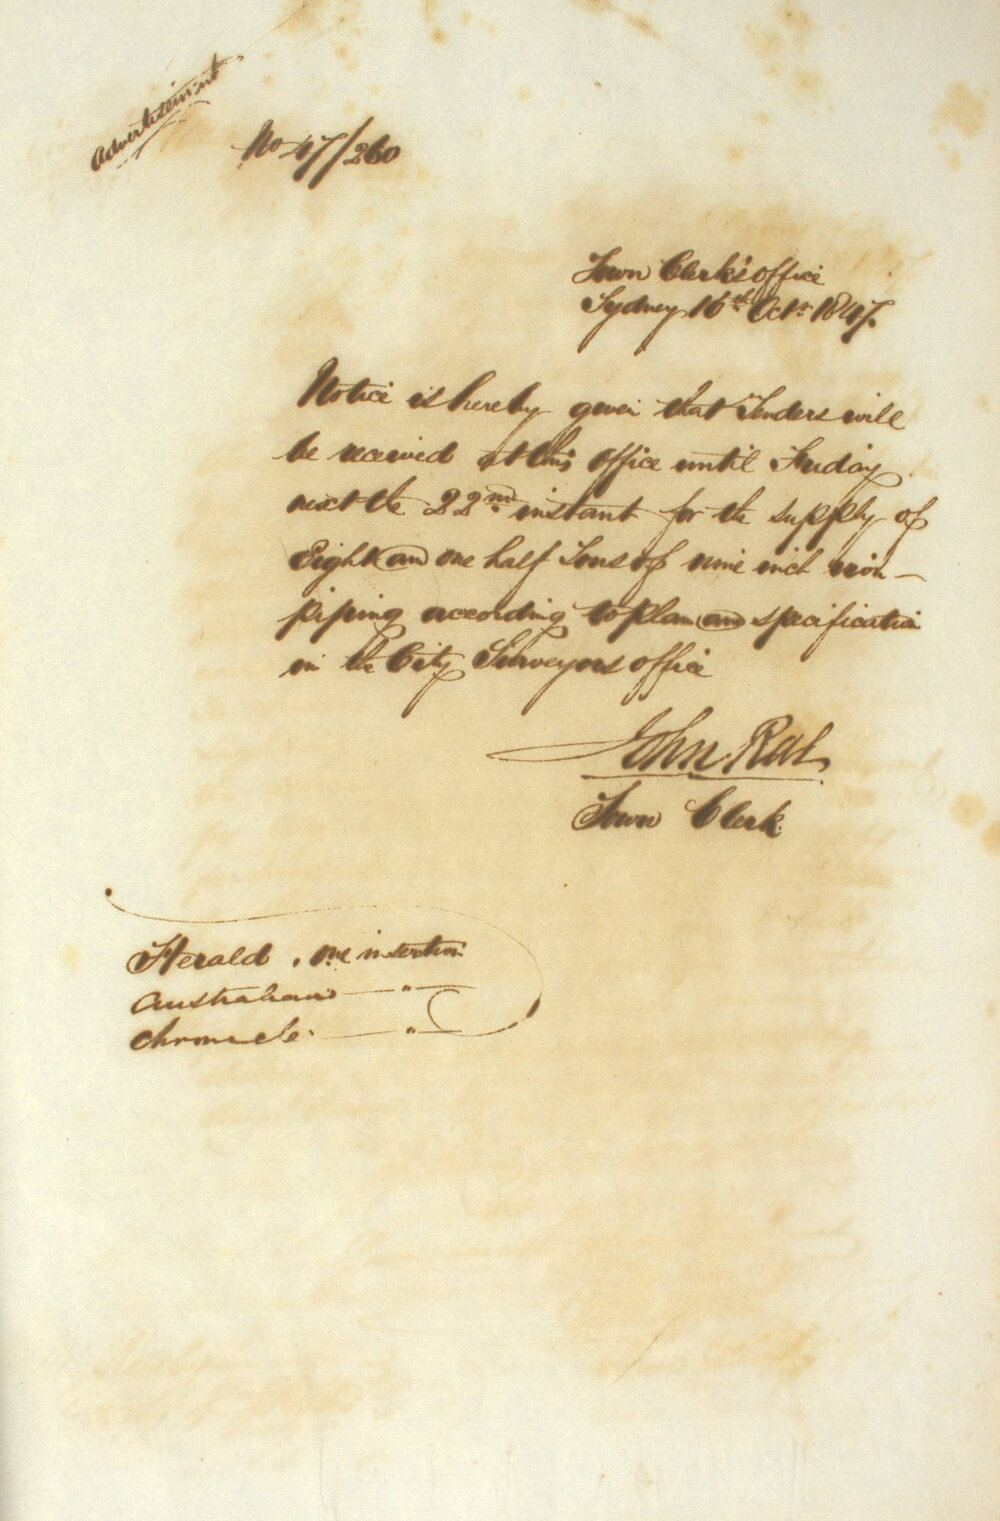 Advertisement
No 47/260
Town Clerk's office
Sydney 16th Octr 1847.
Notice is hereby given that Tenders will
be received at this office until Friday
next the 22nd instant for the supply of
Eight and one half Tons of nine inch iron
piping according to plan and specification
in the City Surveyors office
John Rae
Town Clerk
Herald . one insertion
Australian — " —
Chronicle — " —